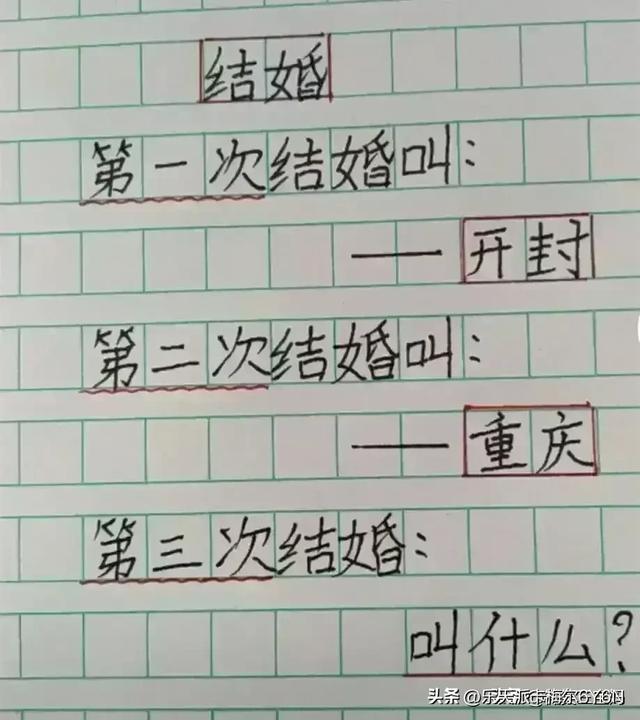 结婚
第一次结婚叫：
——开封
第二次结婚叫：
——重庆
第三次结婚：
叫什么？
头条